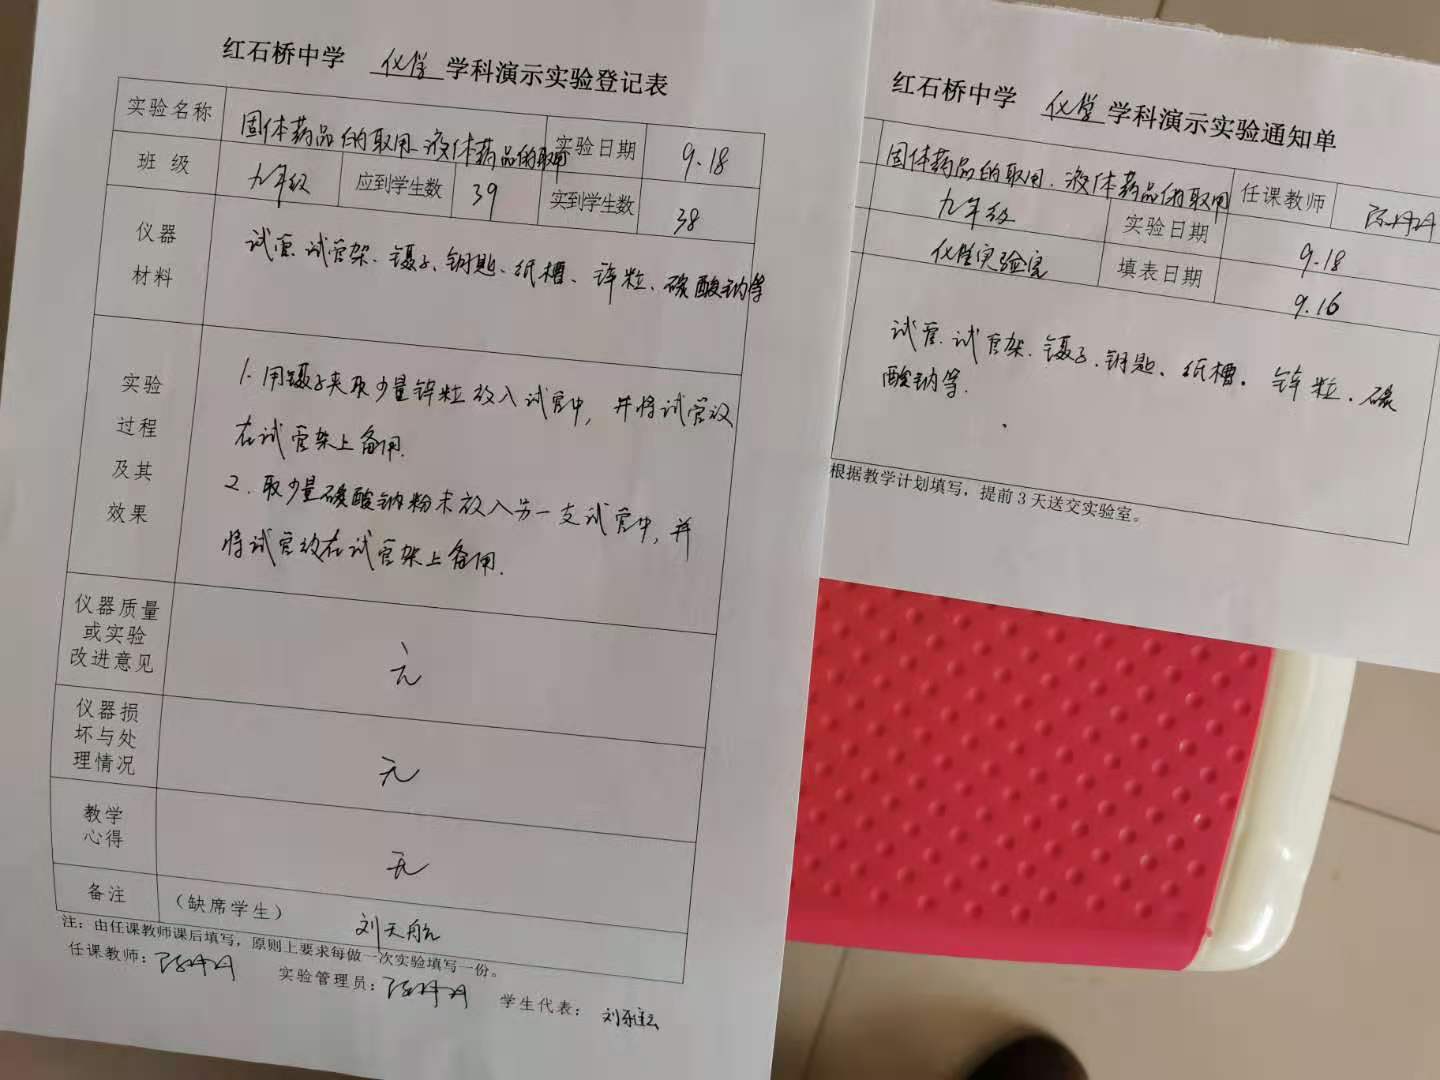 红石桥中学 化学 学科演示实验登记表
实验名称 固体药品的取用、液体药品的取用 实验日期 9.18
班级 九年级 应到学生数 39 实到学生数 38
仪器材料 试管、试管架、镊子、钥匙、纸槽、锌粒、碳酸钠等
实验过程及其效果
1. 用镊子夹取少量锌粒放入试管中,并将试管放
在试管架上备用.
2. 取少量碳酸钠粉末放入另一支试管中,并
将试管放在试管架上备用.
仪器质量
或实验
改进意见 无
仪器损
坏与处
理情况 无
教学
心得 无
备注 (缺席学生) 刘天航
注:由任课教师课后填写,原则上要求每做一次实验填写一份。
任课教师: 实验管理员: 学生代表:
红石桥中学 化学 学科演示实验通知单
固体药品的取用、液体药品的取用 任课教师
九年级 实验日期 9.18
化学实验室 填表日期 9.16
试管、试管架、镊子、钥匙、纸槽、锌粒、碳
酸钠等.
根据教学计划填写,提前3天送交实验室。